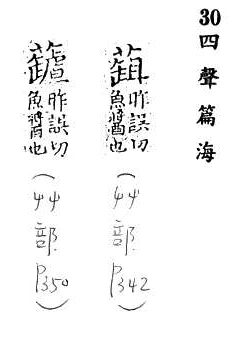 30 四聲篇海
昨誤切魚醬也（艸部P342）
昨誤切魚醬也（艸部P350）